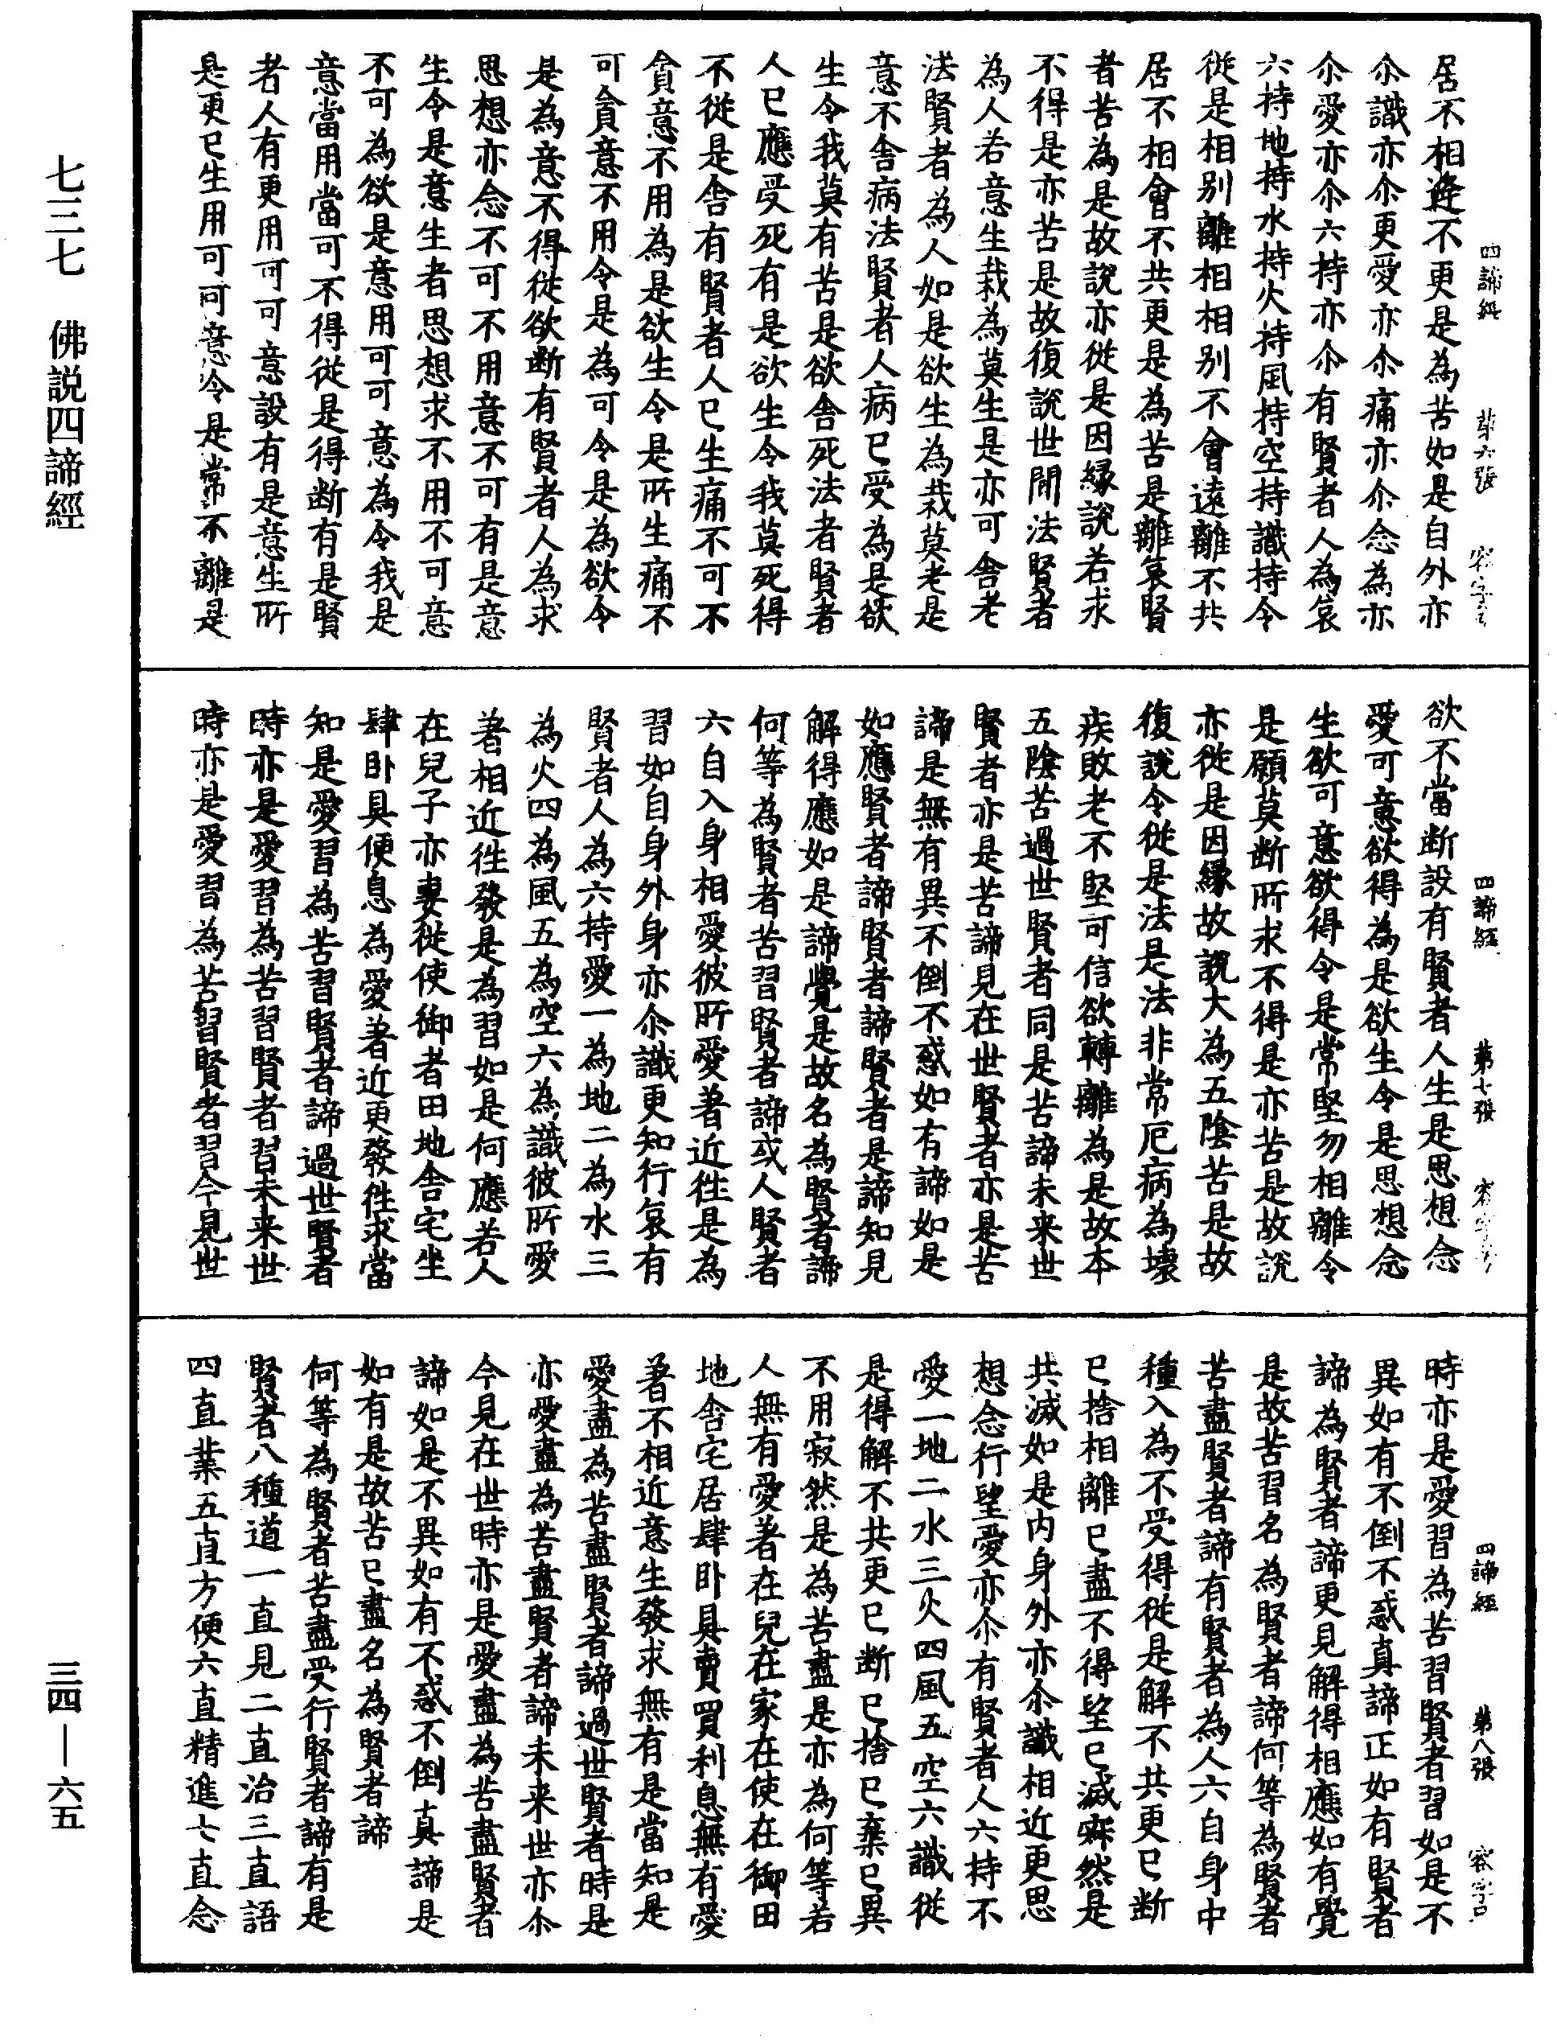 四諦經　第六張　容字
居不相逢不更是為苦如是自外亦
尒識亦尒更愛亦尒痛亦尒念為亦
尒愛亦尒六持亦尒有賢者人為哀
六持地持水持火持風持空持識持令
從是相別離相相別不會遠離不共
居不相會不共更是為苦是離哀賢
者苦為是故說亦從是因緣說若求
不得是亦苦是故復說世間法賢者
為人若意生栽為莫生是亦可舍老
法賢者為人如是欲生為栽莫老是
意不舍病法賢者人病已受為是欲
生令我莫有苦是欲舍死法者賢者
人已應受死有是欲生令我莫死得
不從是舍有賢者人已生痛不可不
貪意不用為是欲生令是所生痛不
可貪意不用令是為可令是為欲令
是為意不得從欲斷有賢者人為求
思想亦念不可不用意不可有是意
生令是意生者思想求不用不可意
不可為欲是意用可可意為令我是
意當用當可不得從是得斷有是賢
者人有更用可可意設有是意生所
是更已生用可可意令是常不離是
四諦經　第七張　容字
欲不當斷設有賢者人生是思想念
愛可意欲得為是欲生令是思想念
生欲可意欲得令是常堅勿相離令
是願莫斷所求不得是亦苦是故說
亦從是因緣故說大為五陰苦是故
復說令從是法是法非常厄病為壞
疾敗老不堅可信欲轉離為是故本
五陰苦過世賢者同是苦諦未来世
賢者亦是苦諦見在世賢者亦是苦
諦是無有異不倒不惑如有諦如是
如應賢者諦賢者諦賢者是諦知見
解得應如是諦覺是故名為賢者諦
何等為賢者苦習賢者諦或人賢者
六自入身相愛彼所愛著近往是為
習如自身外身亦尒識更知行哀有
賢者人為六持愛一為地二為水三
為火四為風五為空六為識彼所愛
著相近往發是為習如是何應若人
在兒子亦妻從使御者田地舍宅坐
肆臥具便息為愛著近更發往求當
知是愛習為苦習賢者諦過世賢者
時亦是愛習為苦習賢者習未来世
時亦是愛習為苦習賢者習今見世
四諦經　第八張　容字
時亦是愛習為苦習賢者習如是不
異如有不倒不惑真諦正如有賢者
諦為賢者諦更見解得相應如有覺
是故苦習名為賢者諦何等為賢者
苦盡賢者諦有賢者為人六自身中
種入為不受得從是解不共更已斷
已捨相離已盡不得望已滅寂然是
共滅如是内身外亦尒識相近更思
想念行望愛亦尒有賢者人六持不
愛一地二水三火四風五空六識從
是得解不共更已斷已捨已棄已異
不用寂然是為苦盡是亦為何等若
人無有愛著在兒在家在使在御田
地舍宅居肆臥具賣買利息無有愛
著不相近意生發求無有是當知是
愛盡為苦盡賢者諦過世賢者時是
亦愛盡為苦盡賢者諦未来世亦尒
今見在世時亦是愛盡為苦盡賢者
諦如是不異如有不惑不倒真諦是
如有是故苦已盡名為賢者諦
何等為賢者苦盡受行賢者諦有是
賢者八種道一直見二直治三直語
四直業五直方便六直精進七直念
七三七　佛說四諦經
三四—六五